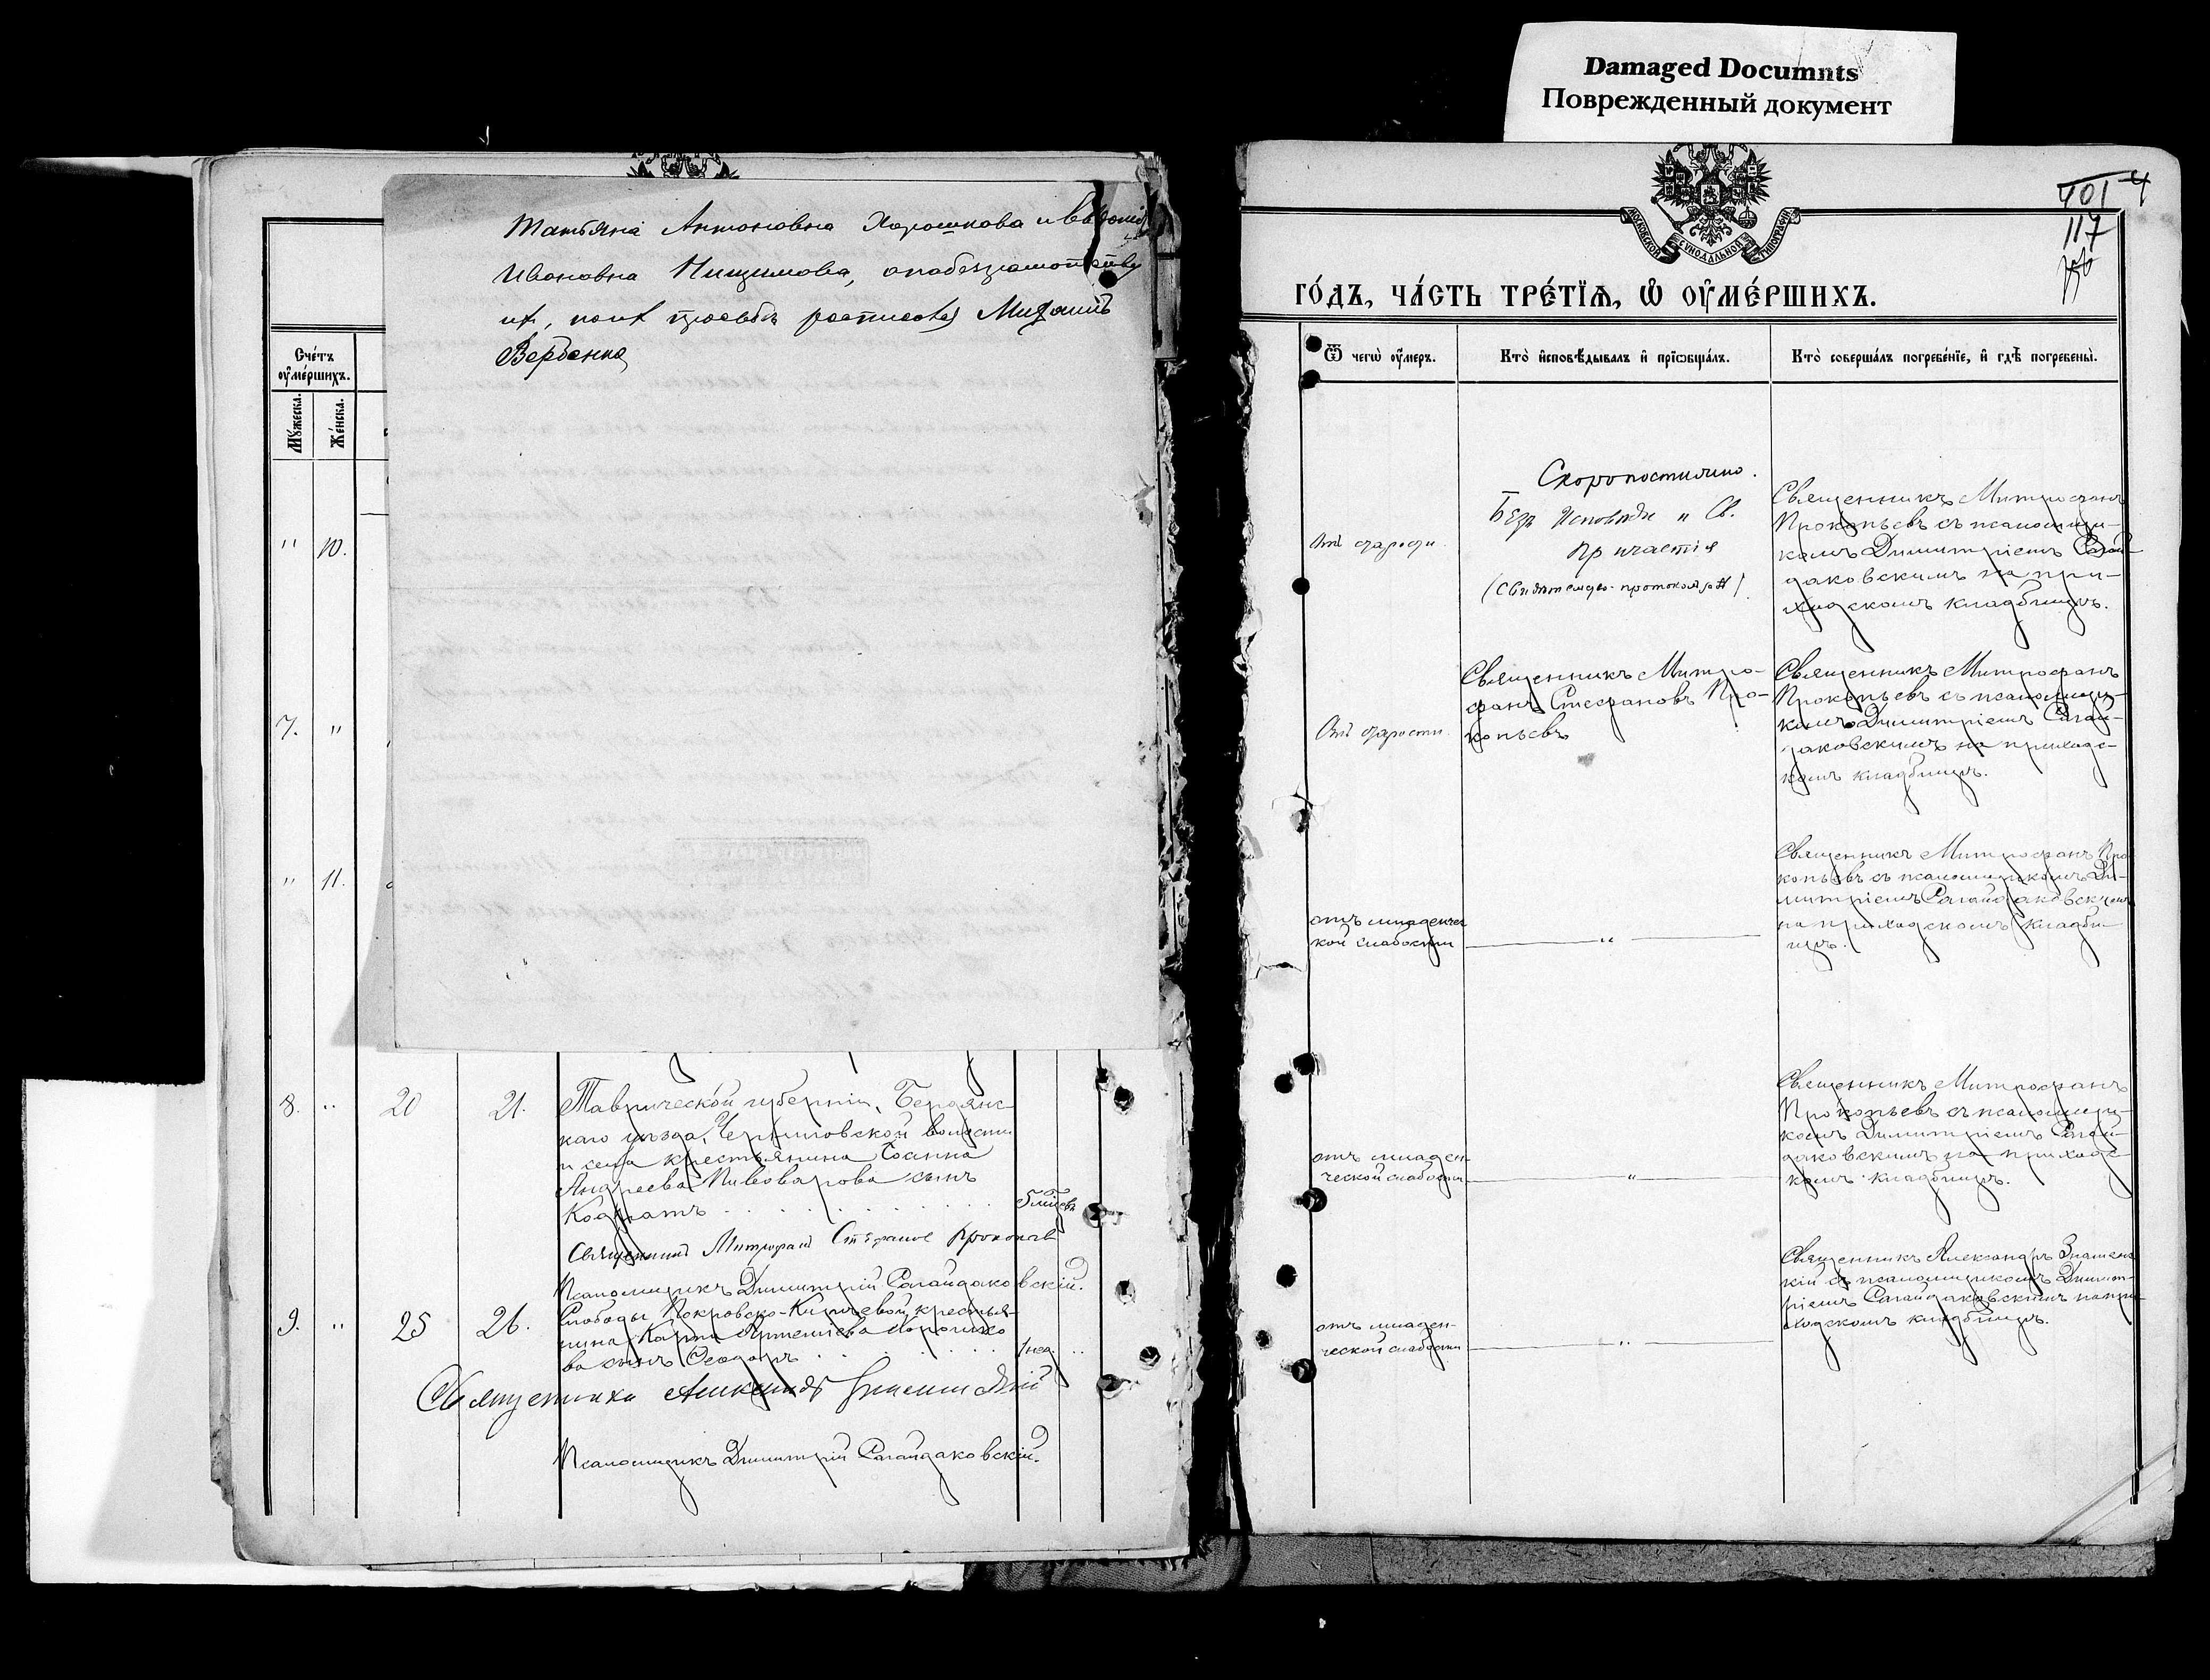 Damaged Documnts
Поврежденный документ
Татьяна Антоновна Хорошкова и
Ивановна Нищимова, а по безграмотству
их, по их просьбе росписался Михаилъ
Вербенко
Счетъ
оумершихъ.
Мужеска.
Женска.
" 10.
7. "
" 11.
8. " 20 21. Таврической губерніи, Бердянс-
каго уѣзда, Черниговской волости
и села крестьянина Іоанна
Андреева Пивоварова сынъ
Кодратъ . . . . . . . . . 5 мѣсев.
Священникъ Митрофанъ Стефановъ Прокопьевъ
Псаломщикъ Димитрій Сагайдаковскій.
9. " 25 26. Слободы Покровско-Киреевой, крестья-
нина Карпа Артемиева
ва сынъ Ѳеодоръ . . . . . . 1 нед. "
Священникъ Александръ Знаменскій
Псаломщикъ Димитрій Сагайдаковскій.
МОСКОВСКОЙ СУНОДАЛЬНОЙ ТИПОГРАФІИ
401 4
117
годъ, часть третїѧ, ѡ оумершихъ.
Ѿ чегѡ оумеръ.
Кто исповѣдывалъ и прїѡбщалъ.
Кто совершалъ погребенїе, и гдѣ погребены.
Отъ старости.
Скоропостижно.
Безъ Исповѣди и Св.
Причастія
Священникъ Митрофанъ
Прокопьевъ съ псаломщи-
комъ Димитріемъ Сагай-
даковскимъ на при-
ходскомъ кладбищѣ.
Отъ старости.
Священникъ Митро-
фанъ Стефановъ Про-
копьевъ
Священникъ Митрофанъ
Прокопьевъ съ псаломщи-
комъ Димитріемъ Сагай-
даковскимъ на приходс-
комъ кладбищѣ.
отъ младенчес
кой слабости
"
Священникъ Митрофанъ Про
копьевъ съ псаломщикомъ Ди-
митріемъ Сагайдаковскимъ
на приходскомъ кладби-
щѣ.
отъ младен-
ческой слабости
"
Священникъ Митрофанъ
Прокопьевъ съ псаломщи-
комъ Димитріемъ Сагай-
даковскимъ на приходс-
комъ кладбищѣ.
отъ младен-
ческой слабости
"
Священникъ Александръ Знаменс
кій съ псаломщикомъ Димит-
ріемъ Сагайдаковскимъ на при-
ходскомъ кладбищѣ.